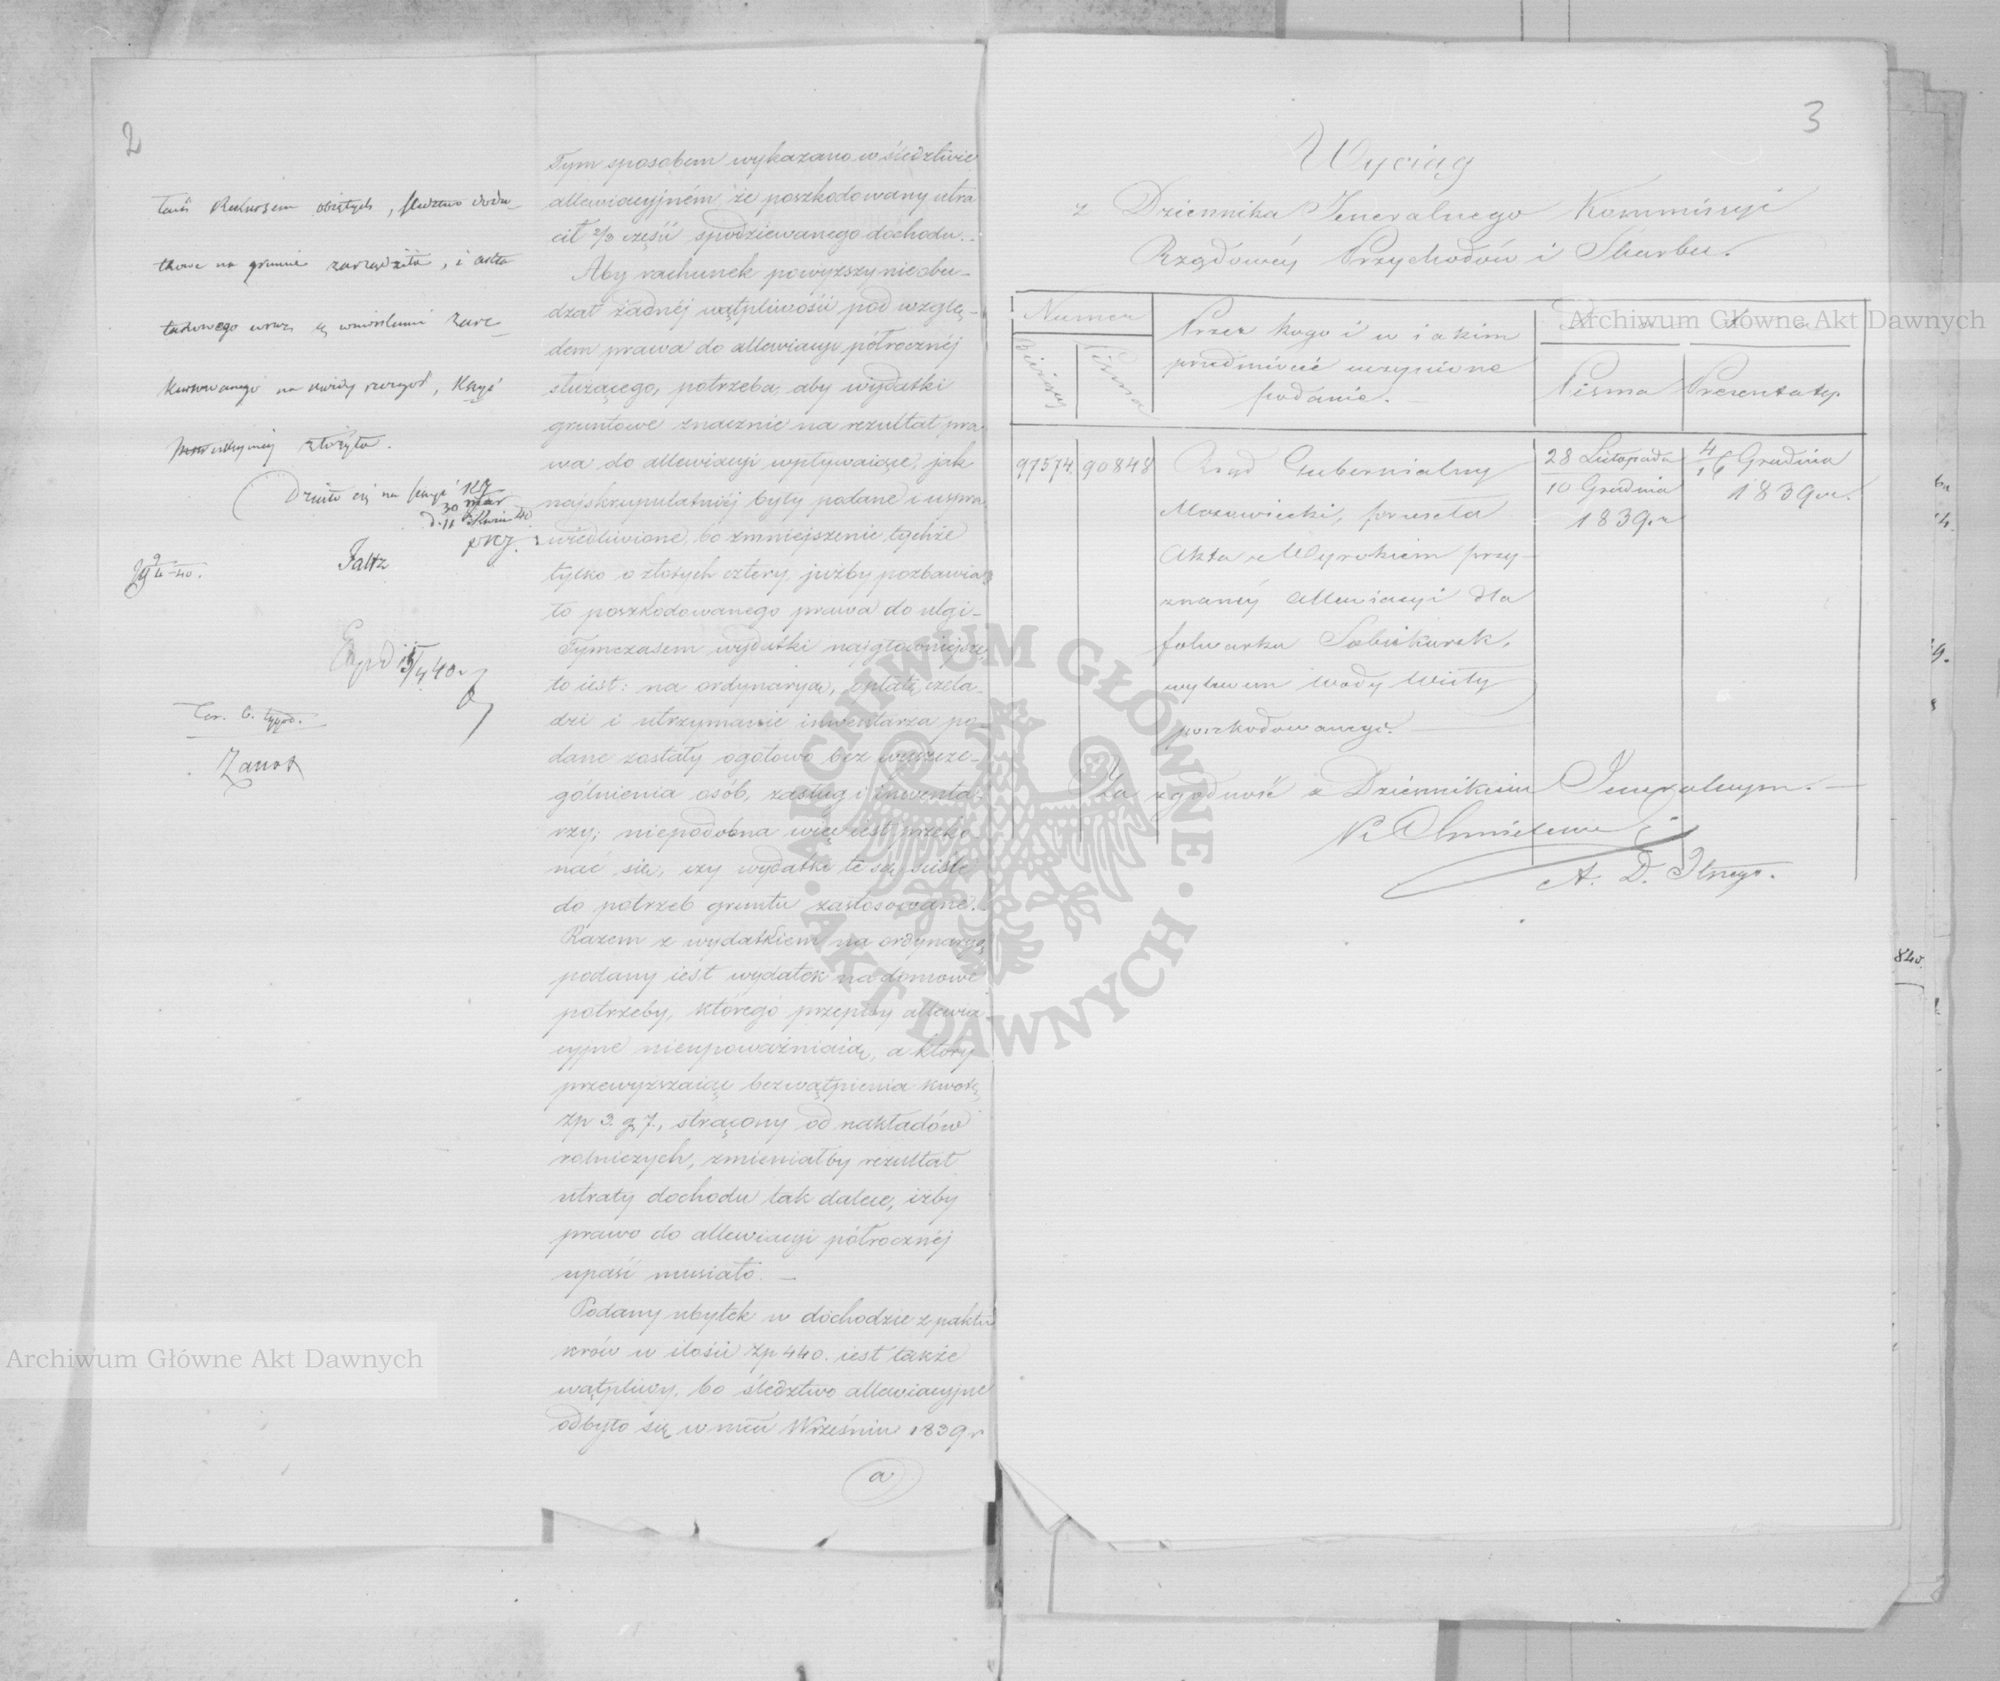 2
tami Rekursem objętych, śledztwo doda-
tkowe na gruncie zarządziła, i akta
takowego wraz z wnioskami
na Sessyi
złożyła.
Działo się na sessyi
Faltz
Expd
Zanoz
Tym sposobem wykazano w śledztwie
allewiacyjném że poszkodowany utra
cił 2/3 części spodziewanego dochodu.
Aby rachunek powyższy nie obu-
dzał żadnéj wątpliwości pod wzglę-
dem prawa do allewiacyi półrocznéj
służącego, potrzeba, aby wydatki
gruntowe znacznie na rezultat pra
wa do allewiacyi wpływaiące, jak
najskrupulatniéj były podane i uspra
wiedliwione, bo zmniejszenie tychże
tylko o złotych cztery, jużby pozbawia
ło poszkodowanego prawa do ulgi-
Tymczasem wydatki najgłówniejsze
to iest: na ordynaryą, opłatę czela-
dzi i utrzymanie inwentarza po-
dane zostały ogółowo bez wyszcze-
gólnienia osób, zasług i inwenta-
rzy; niepodobna więc iest przeko
nać się, czy wydatki te są ściśle
do potrzeb gruntu zastosowane.
Razem z wydatkiem na ordynaryą
podany iest wydatek na domowe
potrzeby, którego przepisy allewia
cyjne nieupoważniaią, a który
przewyższaiąc bezwątpienia kwotę
Zp 3. g 7., strącony od nakładów
rolniczych, zmieniałby rezultat
utraty dochodu tak dalece, iżby
prawo do allewiacyi półrocznéj
upaść musiało. —
Podany ubytek w dochodzie z paktu
krów w ilości Zp 440. iest także
wątpliwy, bo śledztwo allewiacyjne
odbyło się w mcu Wrześniu 1839 r
a
3
Wyciąg
z Dziennika Jeneralnego Kommissyi
Rządowéj Przychodów i Skarbu.
Numer
Bieżący
Pisma
Przez kogo i w iakim
przedmiocie uczynione
podanie.
Data
Pisma
Prezentaty
97574.
90848
Rząd Gubernialny
Mazowiecki, przesyła
Akta z Wyrokiem przy-
znanéj allewiacyi dla
folwarku Sobiekursk,
wylewem wody Wisły
poszkodowanego.
28 Listopada
10 Grudnia
1839 r
4/16 Grudnia
1839 r.
Za zgodność z Dziennikiem Jeneralnym.
A. D. Jlnego.
840.
Archiwum Główne Akt Dawnych
Archiwum Główne Akt Dawnych
ARCHIWUM GŁÓWNE · AKT DAWNYCH ·